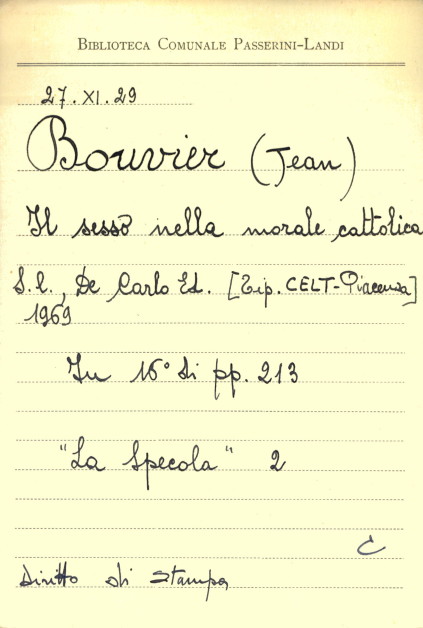 BIBLIOTECA COMUNALE PASSERINI-LANDI
27.XI.29
Bouvier (Jean)
Il sesso nella morale cattolica
S.l., De Carlo Ed. [Tip. CELT-Piacenza]
1969
In 16° di pp. 213
"La Specola" 2
C
diritto di stampa